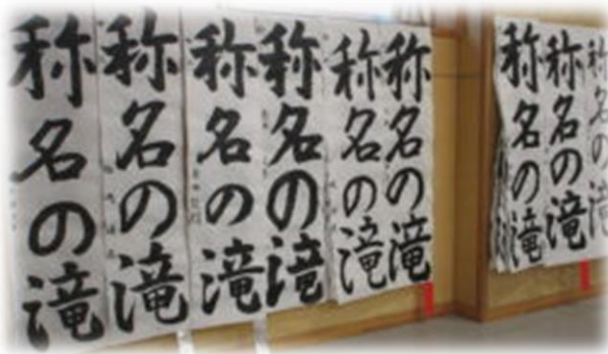 称名の滝
称名の滝
称名の滝
称名の滝
称名の滝
称名の滝
称名の滝
称名の滝
称名の滝